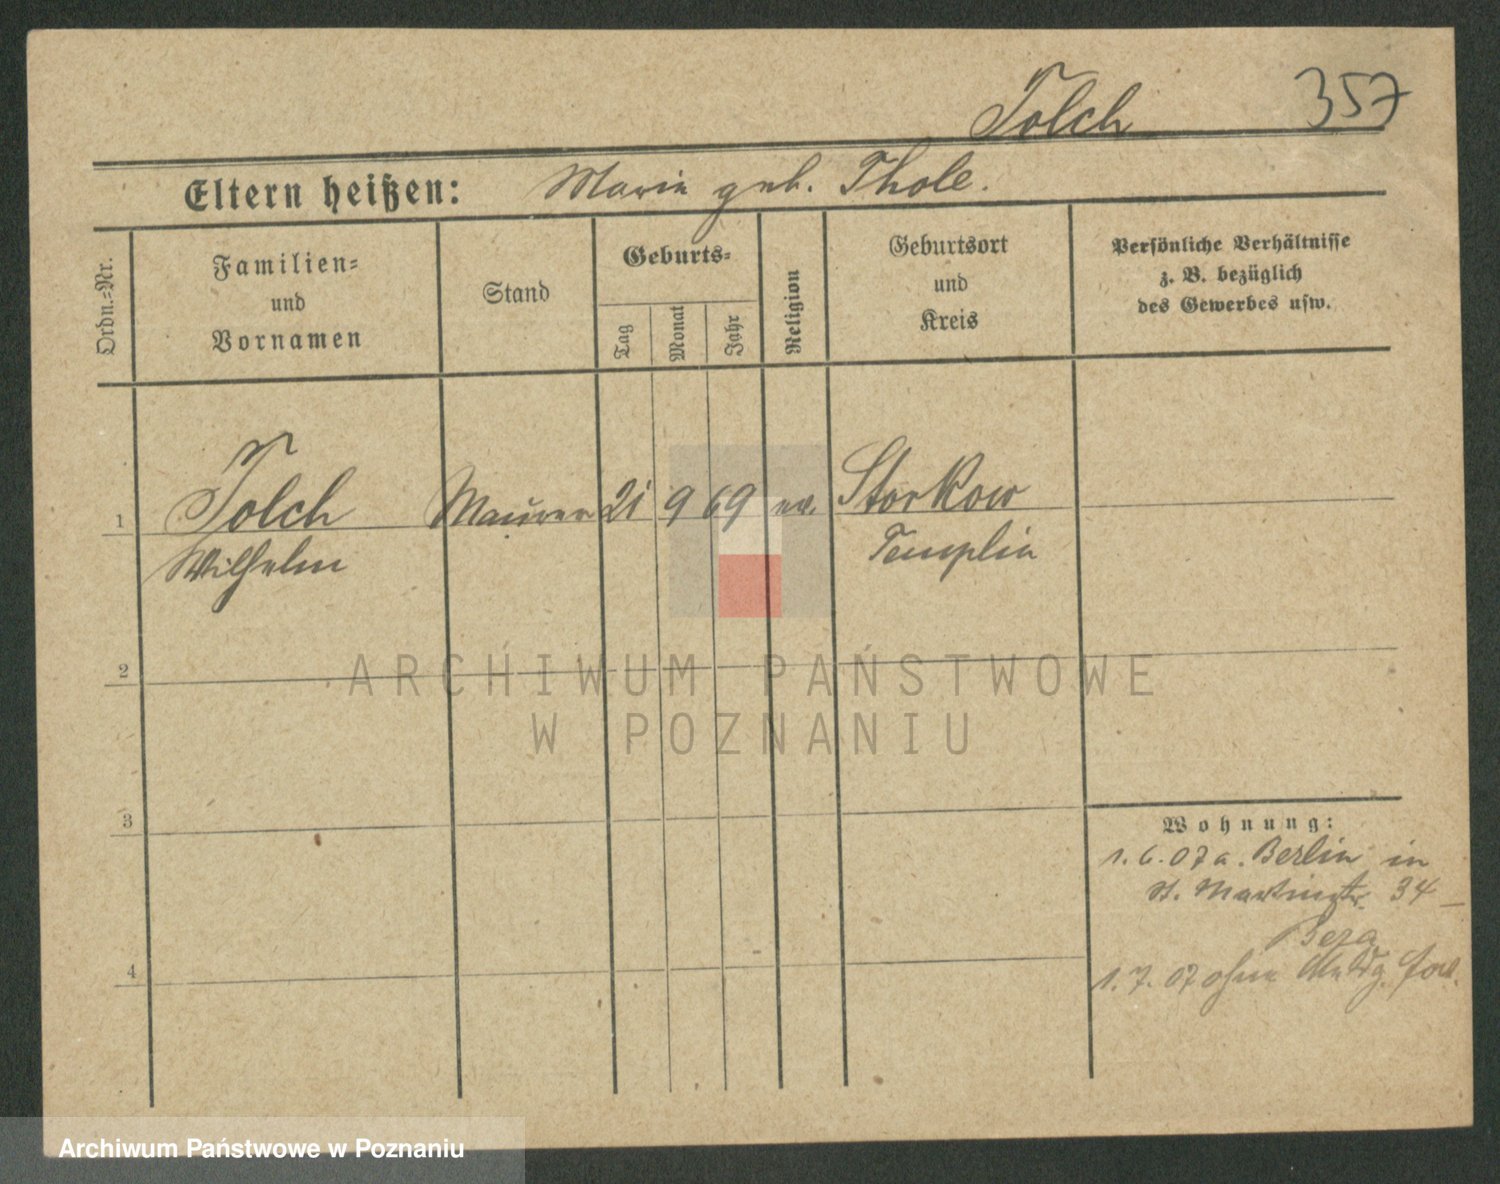 Tolch 357
Eltern heißen: Marie geb. Thole.
Ordn.=Nr.
Familien=
und
Vornamen
Stand
Geburts=
Tag
Monat
Jahr
Religion
Geburtsort
und
Kreis
Persönliche Verhältnisse
z. B. bezüglich
des Gewerbes usw.
1 Tolch Maurer 21 9 69 ev. Storkow
Wilhelm Templin
2
3
4
Wohnung:
1. 6. 07 a. Berlin in
St. Martinstr. 34
1. 7. 07 ohne
ARCHIWUM PAŃSTWOWE
W POZNANIU
Archiwum Państwowe w Poznaniu